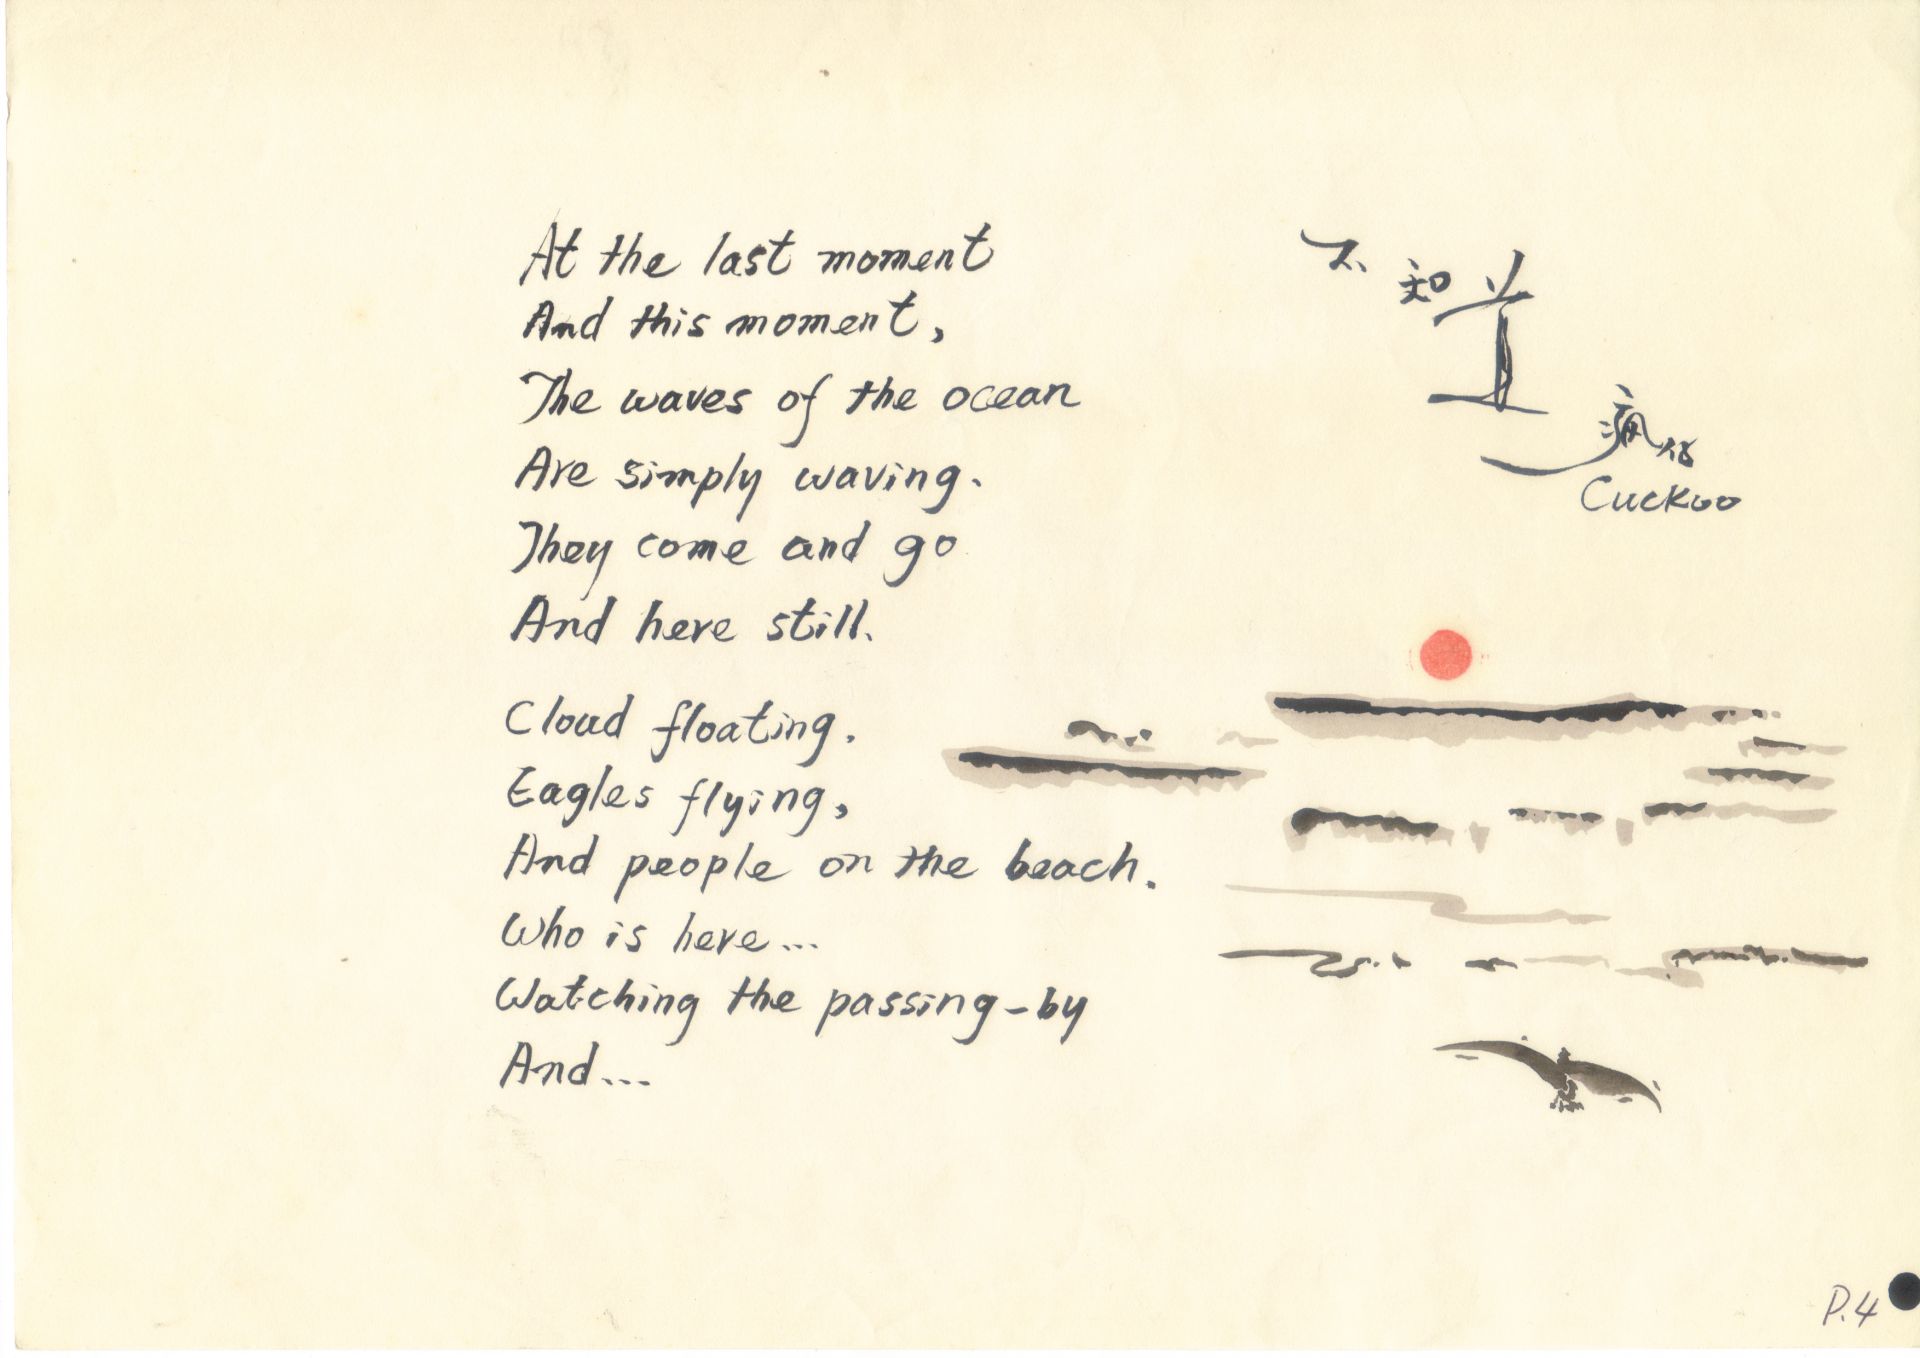 At the last moment
And this moment,
The waves of the ocean
Are simply waving.
They come and go
And here still.
Cloud floating.
Eagles flying,
And people on the beach.
Who is here...
Watching the passing-by
And...
不知道
瘋
Cuckoo
P.4